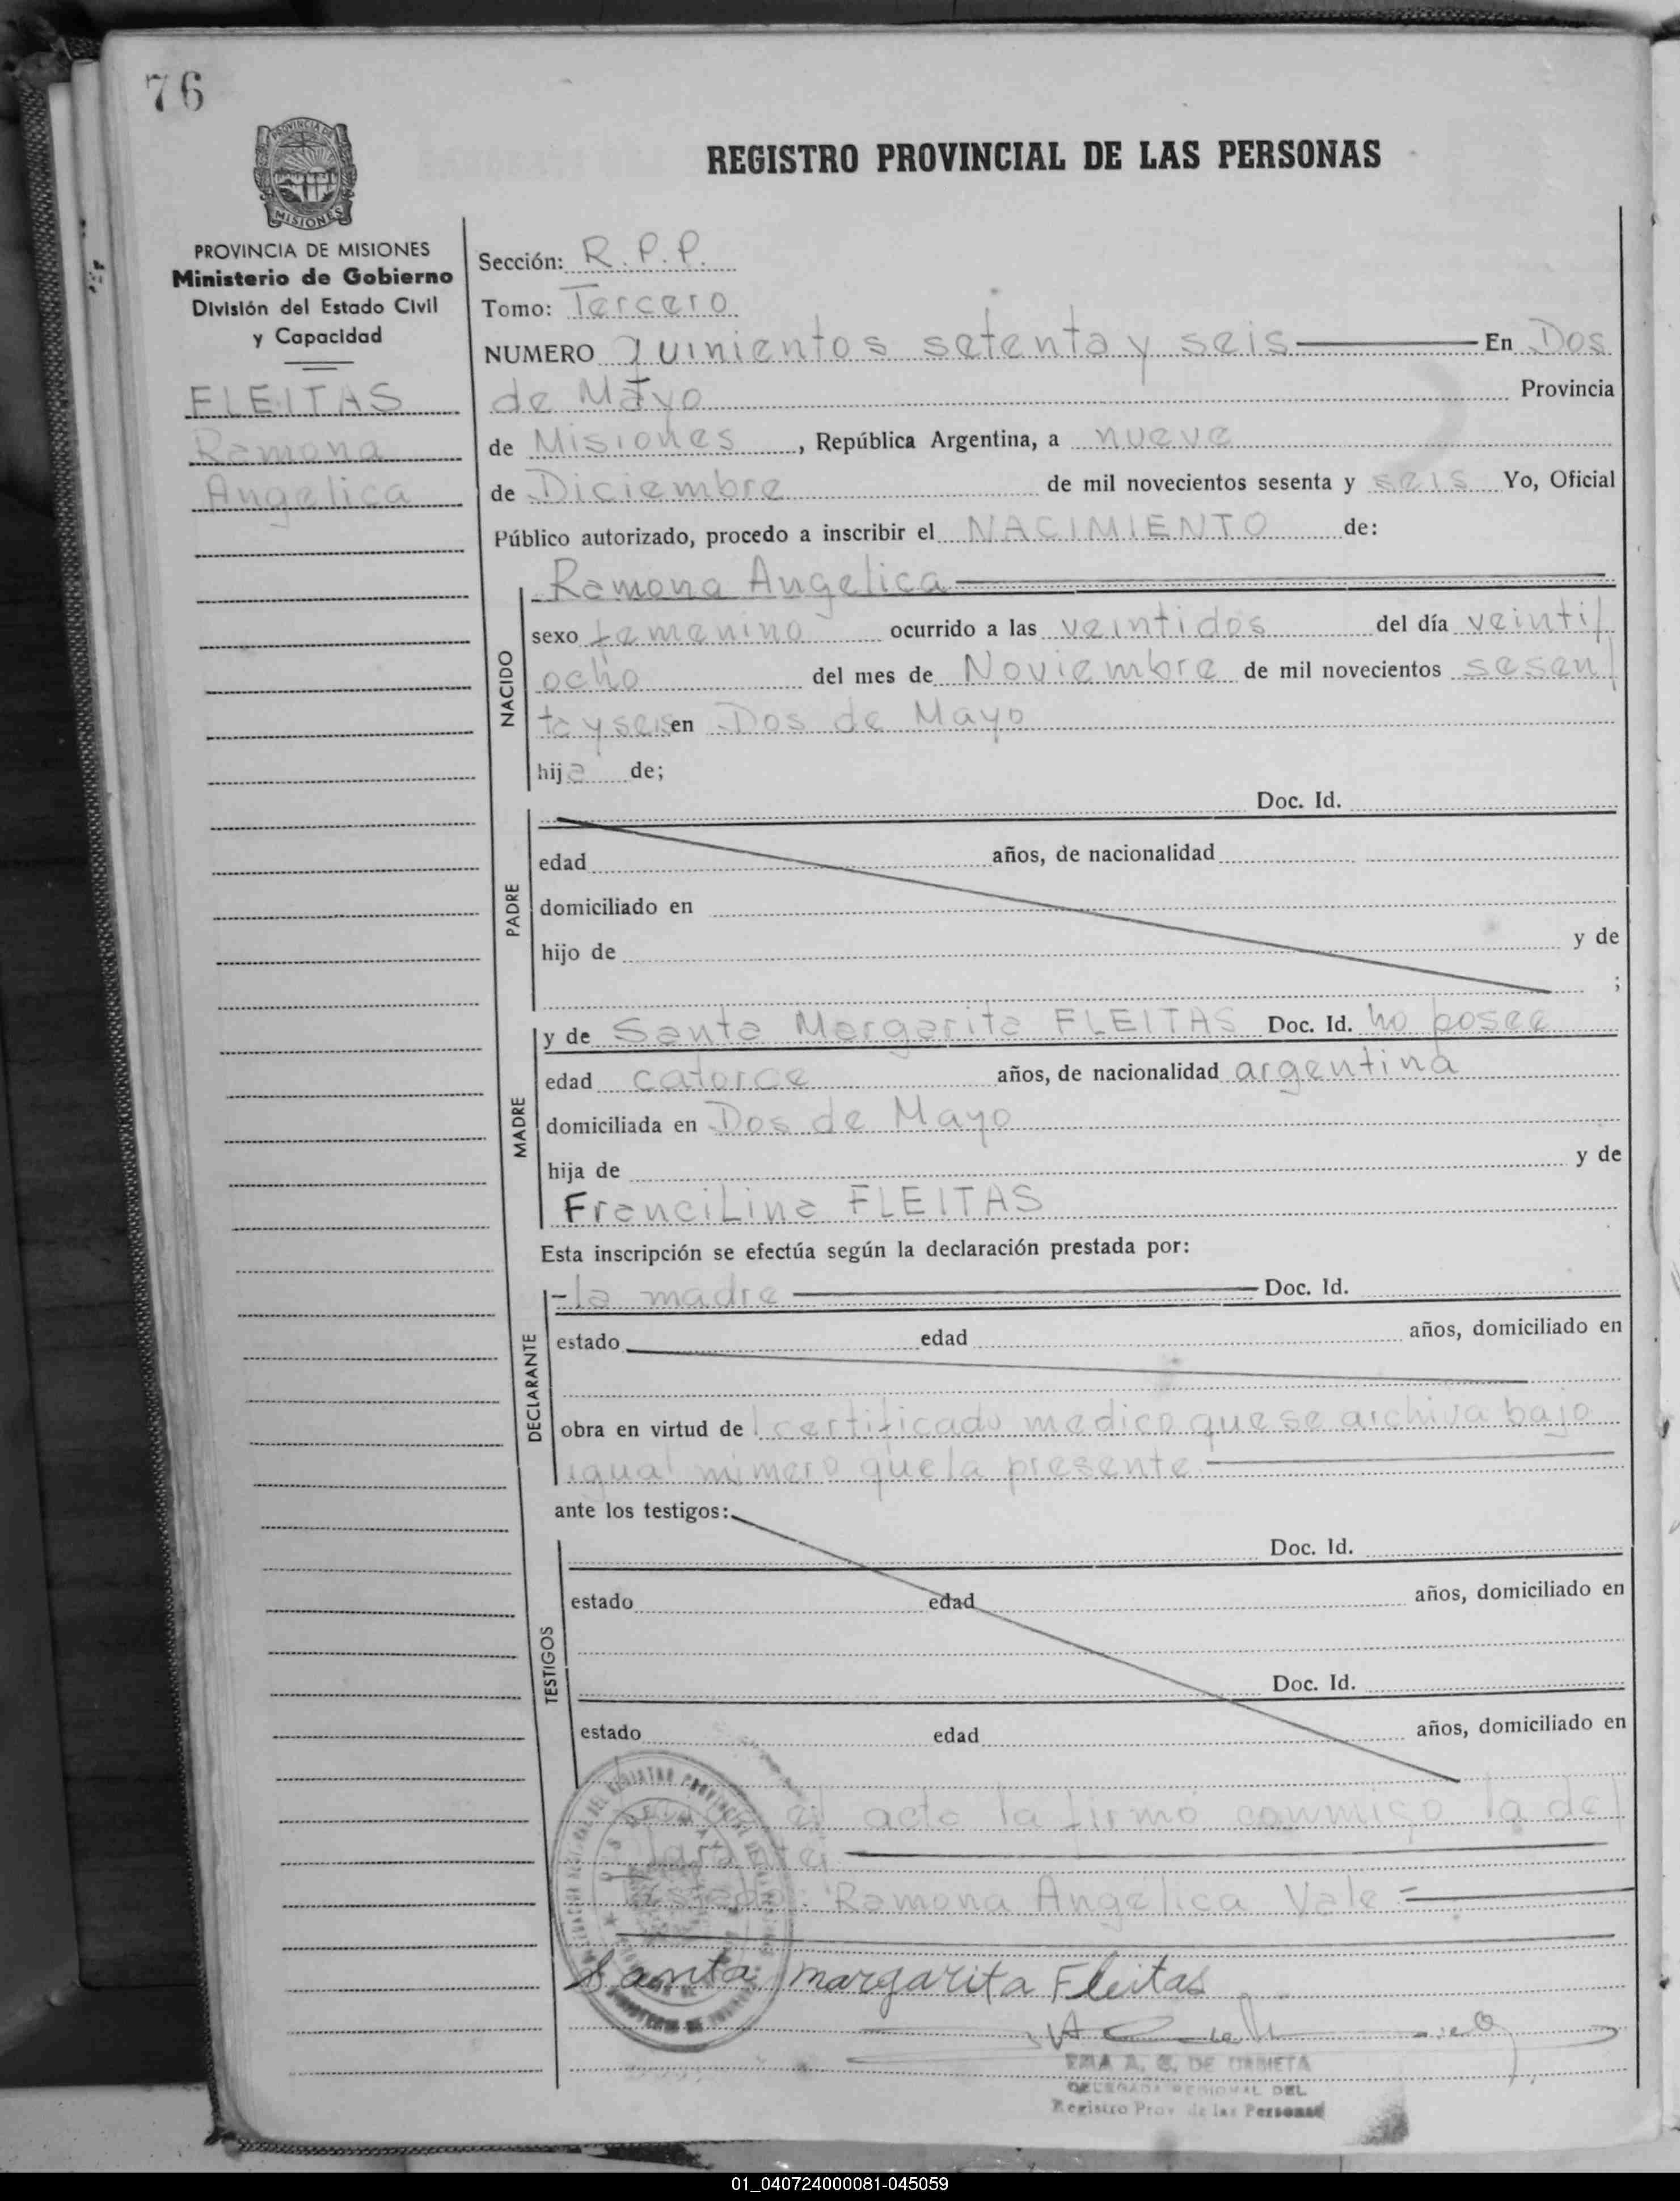 76
PROVINCIA DE
MISIONES
REGISTRO PROVINCIAL DE LAS PERSONAS
PROVINCIA DE MISIONES
Ministerio de Gobierno
División del Estado Civil
y Capacidad
FLEITAS
Ramona
Angelica
Sección: R.P.P.
Tomo: Tercero
NUMERO Quinientos setenta y seis En Dos
de Mayo Provincia
de Misiones, República Argentina, a nueve
de Diciembre de mil novecientos sesenta y seis Yo, Oficial
Público autorizado, procedo a inscribir el NACIMIENTO de:
NACIDO
Ramona Angelica
sexo femenino ocurrido a las veintidos del día veinti/
ocho del mes de Noviembre de mil novecientos sesen/
ta y seis en Dos de Mayo
hija de;
PADRE
Doc. Id.
edad años, de nacionalidad
domiciliado en
hijo de y de
;
MADRE
y de Santa Margarita FLEITAS Doc. Id. no posee
edad catorce años, de nacionalidad argentina
domiciliada en Dos de Mayo
hija de y de
Francilina FLEITAS
Esta inscripción se efectúa según la declaración prestada por:
DECLARANTE
-la madre Doc. Id.
estado edad años, domiciliado en
obra en virtud de l certificado medico que se archiva bajo
igual número que la presente
ante los testigos:
TESTIGOS
Doc. Id.
estado edad años, domiciliado en
Doc. Id.
estado edad años, domiciliado en
el acta la firmó conmigo la de
larante
Ramona Angelica Vale=
Santa margarita Fleitas
EMA A. G. DE URBIETA
DELEGADA REGIONAL DEL
Registro Prov de las Personas
01_040724000081-045059